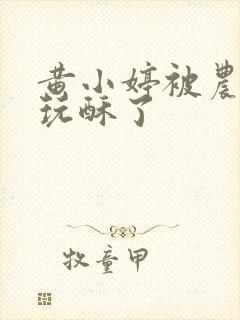 黄小婷被農
玩酥了
牧童甲